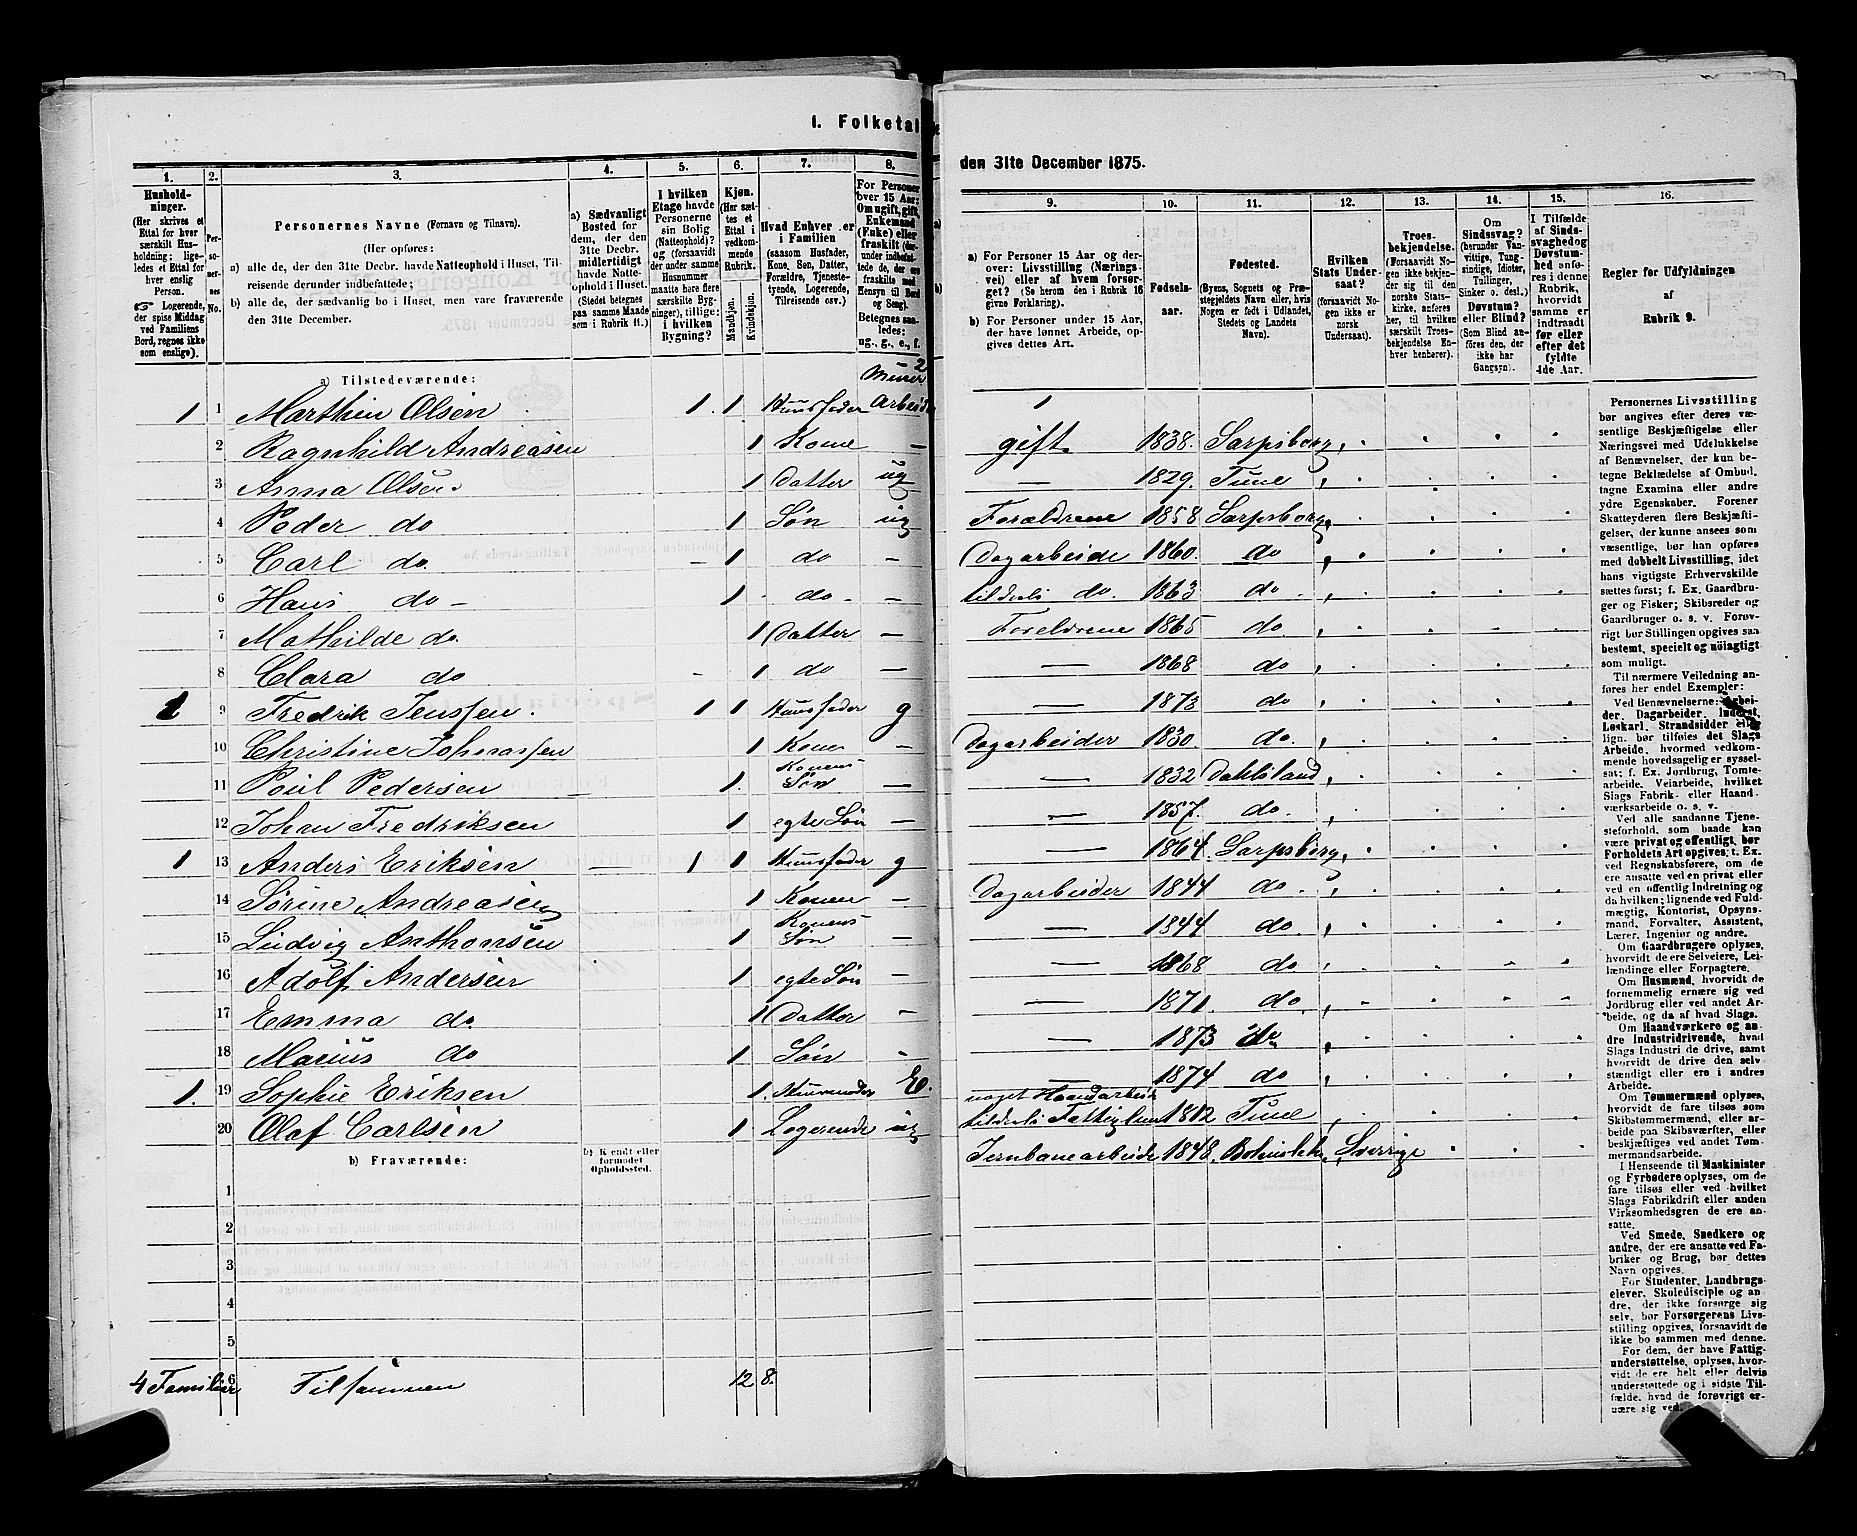 1. Folketal
den 31te December 1875.
1.
2.
3.
4.
5.
6.
7.
8.
Hushold-
ninger.
(Her skrives et
Ettal for hver
særskilt Hus-
holdning; lige-
ledes et Ettal for
hver enslig
Person.
☞ Logerende,
der spise Middag
ved Familiens
Bord, regnes ikke
som enslige).
Per-
so-
ner-
nes
No.
Personernes Navne (Fornavn og Tilnavn).
(Her opføres:
a) alle de, der den 31te Decbr. havde Natteophold i Huset, Til-
reisende derunder indbefattede;
b) alle de, der sædvanlig bo i Huset, men vare fraværende
den 31te December.
a) Sædvanligt
Bosted for
dem, der den
31te Decbr.
midlertidigt
havde Natte-
ophold i Huset.
(Stedet betegnes
paa samme Maade
som i Rubrik 11.)
I hvilken
Etage havde
Personerne
sin Bolig
(Natteophold)?
og (forsaavidt
der under samme
Husnummer
maatte høre flere
særskilte Byg-
ninger), tillige:
i hvilken
Bygning?
Kjøn.
(Her sæt-
tes et
Ettal i
vedkom-
mende
Rubrik.
Mandkjøn.
Kvindekjøn.
Hvad Enhver er
i Familien
(saasom Husfader,
Kone, Søn, Datter,
Forældre, Tjeneste-
tyende, Logerende,
Tilreisende osv.)
For Personer
over 15 Aar:
Om ugift, gift,
Enkemand
(Enke) eller
fraskilt
Betegnes saa-
ledes:
ug., g., e., f.
a) Tilstedeværende:
Murer
Arbeid
1 1 Marthin Olsen 1. 1 Huusfader
2 Ragnhild Andreasen 1 Kone —
3 Anna Olsen 1 Datter ug
4 Peder do 1 Søn ug
5 Carl do. 1 do —
6 Hans do — 1 do. —
7 Mathilde do. 1 Datter —
8 Clara do 1 do —
1 9 Fredrik Jenssen. 1 1 Huusfader g
10 Christine Johanssen 1 Konen —
11 Poul Pedersen 1. Konens Søn —
12 Johan Fredriksen 1 egte Søn —
1 13 Anders Eriksen 1 1 Huusfader g
14 Sørine Andreasen 1 Konen —
15 Ludvig Anthonsen 1 Konens Søn —
16 Adolf Andersen 1 egte Søn —
17 Emma do 1 Datter —
18 Marius do 1 Søn —
1. 19 Sophie Eriksen 1. Huusmoder E.
20 Olaf Carlsen 1 Logerende ug
b) Fraværende:
b) Kendt eller
formodet
Opholdssted.
1
2
3
4
5
6
4 Familier Tilsammen 12 8.
9.
10.
11.
12.
13.
14.
15.
16.
a) For Personer 15 Aar og der-
over: Livsstilling (Nærings-
vei) eller af hvem forsør-
get? (Se herom den i Rubrik 16
givne Forklaring).
b) For Personer under 15 Aar,
der have lønnet Arbeide, op-
gives dettes Art.
Fødsels-
aar.
Fødested.
(Byens, Sognets og Præ-
stegjeldets Navn eller, hvis
Nogen er født i Udlandet,
Stedets og Landets
Navn).
Hvilken
Stats Under-
saat?
(forsaavidt No-
gen ikke er
norsk
Undersaat).
Troes-
bekjendelse.
(Forsaavidt No-
gen ikke bekjen-
der sig til den
norske Stats-
kirke, anføres
her, til hvilken
særskilt Troes-
bekjendelse En-
hver henhører).
Om
Sindssvag?
(herunder Van-
vittige, Tung-
sindige, Idioter,
Tullinger,
Sinker o. desl.)
Døvstum?
eller Blind?
(Som Blind an-
føres den, der
ikke har
Gangsyn).
I Tilfælde
af Sinds-
svaghed og
Døvstum-
hed anfø-
res i denne
Rubrik,
hvorvidt
samme er
indtraadt
før eller
efter det
fyldte
4de Aar.
Regler for Udfyldningen
af
Rubrik 9.
1
gift. 1838. Sarpsborg
— 1829. Tune
Forældrene 1858 Sarpsborg
Dagarbeide 1860. do
tildels do. 1863 do
Forældrene 1865 do
— 1868 do
— 1873 do
Dagarbeider 1830. do.
— 1832 Dahlsland
— 1857. do.
— 1864. Sarpsborg
Dagarbeider 1844 do
— 1844 do.
— 1868 do
— 1871. do
— 1873 do
— 1874 do
noget Haandarbeide
tildels Fattiglem 1812 Tune
Jernbanearbeide 1848. Sverrige
Personernes Livsstilling
bør angives efter deres væ-
sentlige Beskjæftigelse eller
Næringsvei med Udelukkelse
af Benævnelser, der kun be-
tegne Beklædelse af Ombud,
tagne Examina eller andre
ydre Egenskaber. Forener
Skatteyderen flere Beskjæfti-
gelser, der kunne ansees som
væsentlige, bør han opføres
med dobbelt Livsstilling, idet
hans vigtigste Erhvervskilde
sættes først; f. Ex. Gaardbru-
ger og Fisker; Skibsreder og
Gaardbruger o. s. v. Forøv-
rigt bør Stillingen opgives saa
bestemt, specielt og nöiagtigt
som muligt.
Til nærmere Veiledning an-
føres her endel Exempler:
Ved Benævnelserne: Arbei-
der, Dagarbeider, Inderst,
Løskarl, Strandsidder eller
lign. bør tilføies det Slags
Arbeide, hvormed vedkom-
mende hovedsagelig er syssel-
sat; f. Ex. Jordbrug, Tomte-
arbeide, Veiarbeide, hvilket
Slags Fabrik- eller Haand-
værksarbeide o. s. v.
Ved alle saadanne Tjene-
steforhold, som baade kan
være privat og offentligt, bør
Forholdets Art opgives; t. Ex.
ved Regnskabsførere, om de
ere ansatte ved en privat eller
ved en offentlig Indretning og
da hvilken; lignende ved Fuld-
mægtig, Kontorist, Opsyns-
mand, Forvalter, Assistent,
Lærer, Ingeniør og andre.
Om Gaardbrugere oplyses,
hvorvidt de ere Selveiere, Lei-
lændinge eller Forpagtere.
Om Husmænd, hvorvidt de
fornemmelig ernære sig ved
Jordbrug eller ved andet Ar-
beide, og da af hvad Slags.
Om Haandværkere og an-
dre Industridrivende, hvad
Slags Industri de drive, samt
hvorvidt de drive den selv-
stændigt eller ere i andres
Arbeide.
Om Tømmermænd oplyses,
hvorvidt de fare tilsøs som
Skibstømmermænd, eller ar-
beide paa Skibsværfter, eller
beskjæftiges ved andet Tøm-
mermandsarbeide.
I Henseende til Maskinister
og Fyrbødere oplyses, om de
fare tilsøs eller ved hvilket
Slags Fabrikdrift eller anden
Virksomhedsgren de ere an-
satte.
Ved Smede, Snedkere og
andre, der ere ansatte ved Fa-
briker og Brug, bør dettes
Navn opgives.
For Studenter, Landbrugs-
elever, Skoledisciple og an-
dre, der ikke forsørge sig
selv, bør Forsørgerens Livs-
stilling opgives, forsaavidt de
ikke bo sammen med denne.
For dem, der have Fattig-
understøttelse, oplyses, hvor-
vidt de ere helt eller delvis
understøttede og i sidste Til-
fælde, hvad de forøvrigt er-
nære sig ved.